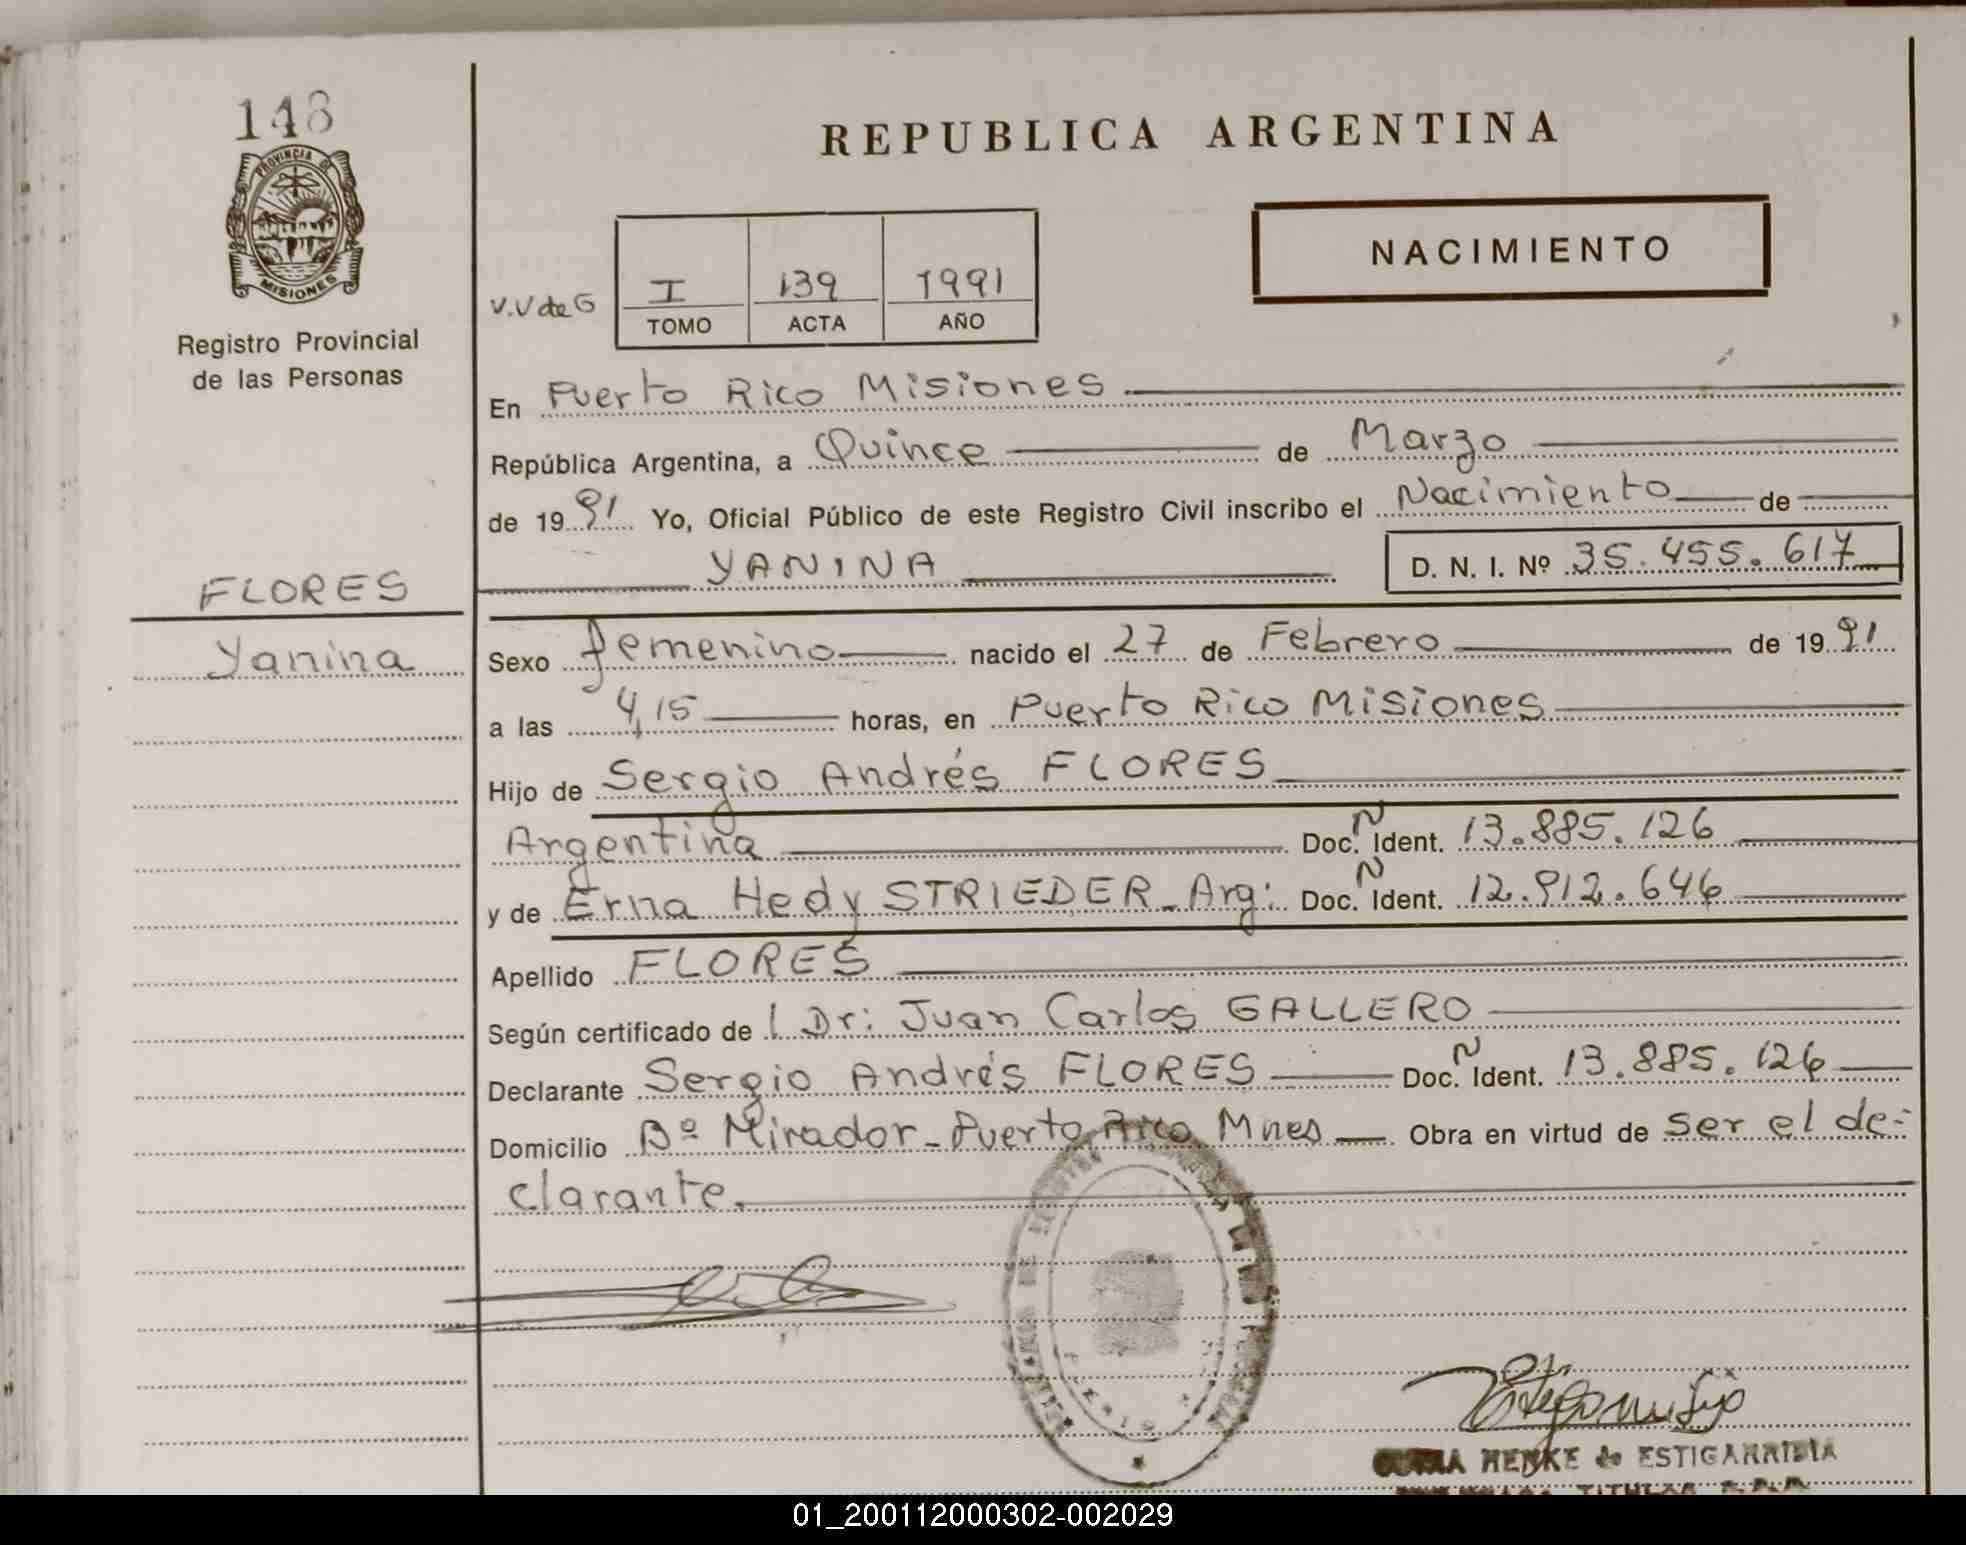 148
PROVINCIA DE
MISIONES
Registro Provincial
de las Personas
REPUBLICA ARGENTINA
NACIMIENTO
V.V de G
I 139 1991
TOMO ACTA AÑO
En Puerto Rico Misiones
República Argentina, a Quince de Marzo
de 1991 Yo, Oficial Público de este Registro Civil inscribo el Nacimiento de
YANINA D. N. I. Nº 35.455.617
FLORES
Yanina
Sexo femenino nacido el 27 de Febrero de 1991
a las 4,15 horas, en Puerto Rico Misiones
Hijo de Sergio Andrés FLORES
Argentina Doc. N Ident. 13.885.126
y de Erna Hedy STRIEDER - Arg: Doc. N Ident. 12.912.646
Apellido FLORES
Según certificado de l Dr: Juan Carlos GALLERO
Declarante Sergio Andrés FLORES Doc. N Ident. 13.885.126
Domicilio Bº Mirador - Puerto Rico Mnes Obra en virtud de ser el de-
clarante.
HENKE de ESTIGARRIBIA
TITULAR
01_200112000302-002029